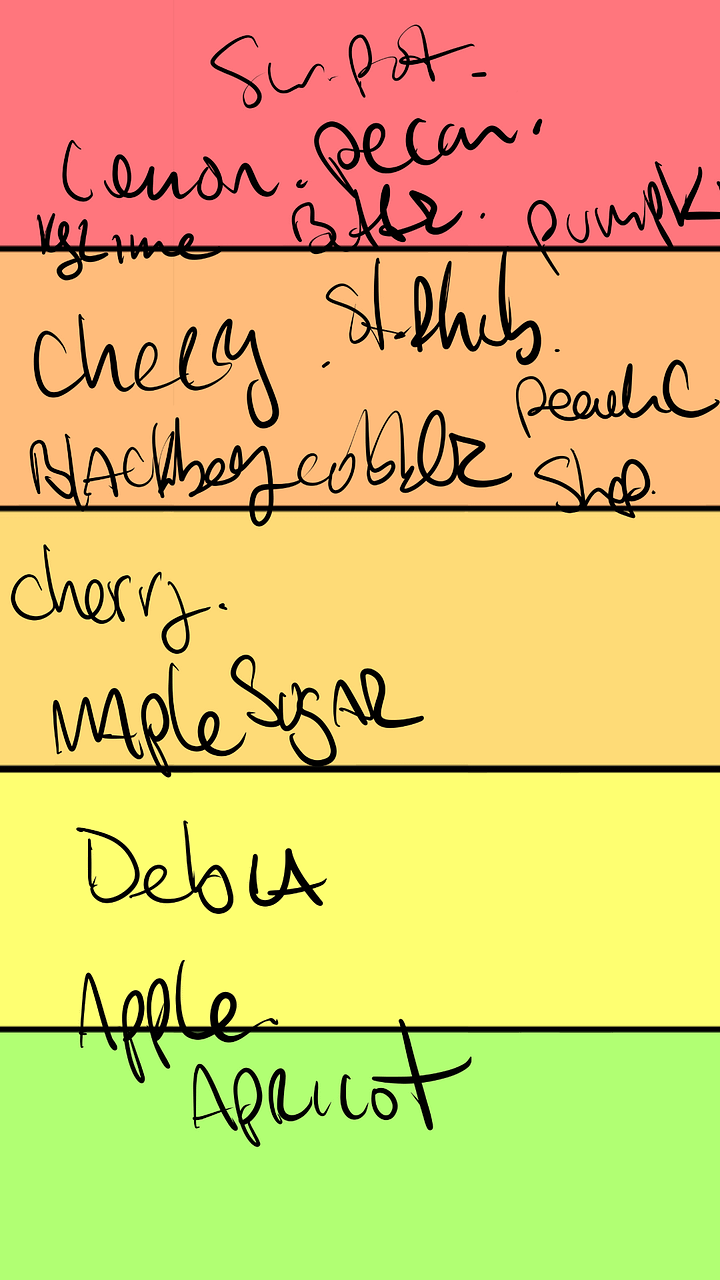 Sw. Pot.
Lemon. Pecan.
Key Lime Butter. Pumpk
Cherry. St. Rhub.
Blackberry cobbler
Shep.
cherry.
MAple SugAR
Apple.
APRicot